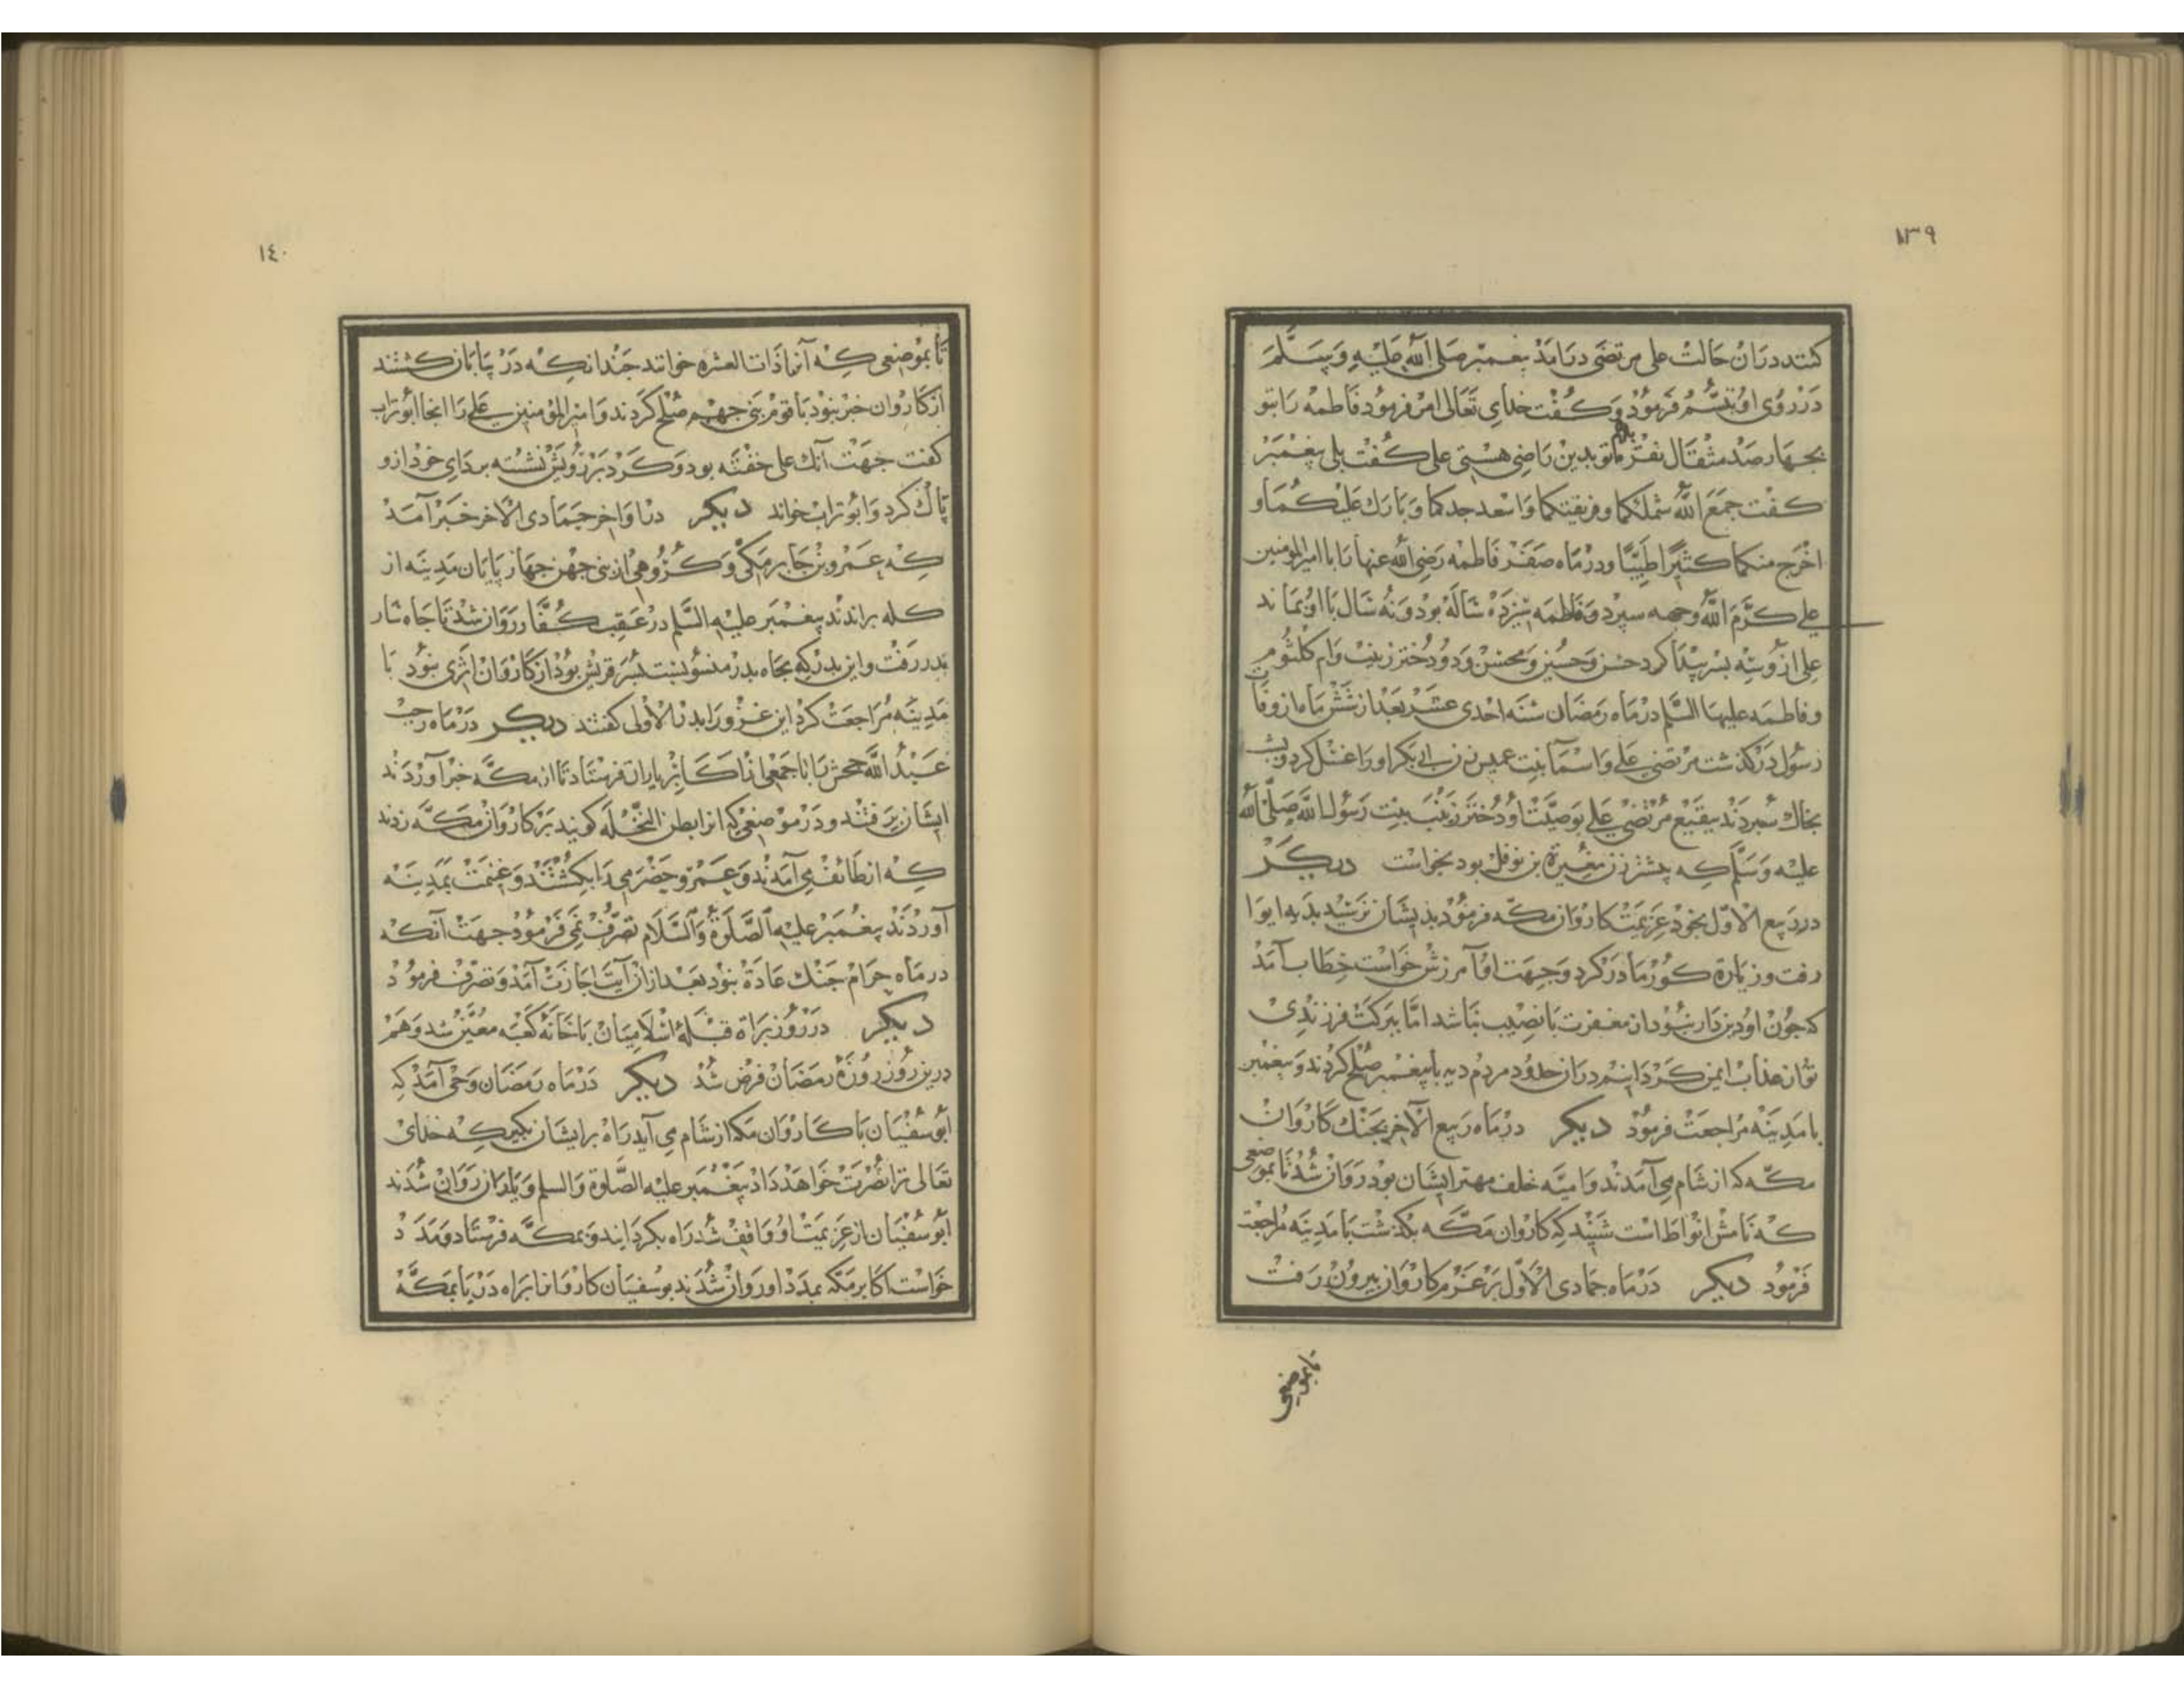 ١٣٩
کنند دران حالت علی مرتضی درآمد پیغمبر صلی الله علیه وسلم
در روی او تبسم فرمود و کفت خدای تعالی امر فرمود فاطمه را بتو
بچهار صد مثقال نقره دهم تو بدین راضی هستی علی کفت بلی پیغمبر
کفت جمع الله شملکما و واسعد جدکما و بارک علیکما و
اخرج منکما کثیرا طیبا و در ماه صفر فاطمه رضی الله عنها را با امیر المومنین
علی کرم الله وجهه سپرد و فاطمه سیزده ساله بود و نه سال با او بماند
علی ازو سه بسر پیدا کرد حسن و حسین و محسن و دو دختر زینب و ام کلثوم
و فاطمه علیها السلم در ماه رمضان سنه احدی عشر بعد از شش ماه از وفات
رسول درکذشت مرتضی علی و اسما بنت عمیس زن ابی بکر او را غسل کرد و بشب
بخاک سبردند ببقیع مرتضی علی بوصیت او دختر زینب بنت رسول الله صلی الله
علیه وسلم که پیشتر زن مغیرة بن نوفل بود بخواست دیکر
در ربیع الاول بخود عزیمت کاروان مکه فرمود بدیشان نرسید بدیه ابوا
رفت و زیارة کور مادر کرد و جهت او آمرزش خواست خطاب آمد
که چون او دین دار نبود از مغفرت با نصیب نباشد اما ببرکت فرزندی
تو از عذاب ایمن کردانیم دران حدود مردم دیه با پیغمبر صلح کردند و پیغمبر
با مدینه مراجعت فرمود دیکر در ماه ربیع الآخر بجنک کاروان
مکه که از شام می آمدند و امیه خلف مهتر ایشان بود روان شد تا بموضعی
که نامش انواط است شنید که کاروان مکه بکذشت با مدینه مراجعت
فرمود دیکر در ماه جمادی الاول بر عزم کاروان بیرون رفت
تا بموضعی
١٤٠
تا بموضعی که آنرا ذات العشره خوانند چندانکه در بیابان کشتند
از کاروان خبر نبود با قوم بنی جهیم صلح کردند و امیر المومنین علی را انجا ابو تراب
کفت جهت آنک علی خفته بود و کرد بر رویش نشسته بردای خود ازو
پاک کرد و ابو تراب خواند دیکر در اواخر جمادی الاخر خبر آمد
که عمرو بن جابر مکی و کروهی از بنی جهن چهار پایان مدینه از
کله براندند پیغمبر علیه السلم در عقب کفار روان شد تا چاه سار
بدر رفت و این بدر که چاه بدر منسوبست بسر قریش بود از کاروان اثری نبود با
مدینه مراجعت کرد این غزو را بدر الاولی کفتند دیکر در ماه رجب
عبد الله جحش را با جمعی از اکابر یاران فرستاد تا از مکه خبر آوردند
ایشان برفتند و در موضعی که انرا بطن النخله کویند بر کاروان مکه زدند
که از طائف می آمدند و عمرو حضرمی را بکشتند و غنیمت بمدینه
آوردند پیغمبر علیه الصلوة والسلام تصرف نمی فرمود جهت آنکه
در ماه حرام جنک عادة نبود بعد ازان آیت اجازت آمد و تصرف فرمود
دیکر در روز براة قبله اسلامیان با خانه کعبه معین شد و هم
درین روز روزه رمضان فرض شد دیکر در ماه رمضان وحی آمد که
ابو سفیان با کاروان مکه از شام می آید راه بر ایشان بکیر که خدای
تعالی ترا نصرت خواهد داد پیغمبر علیه الصلوة والسلم و یاران روان شدند
ابو سفیان از عزیمت او واقف شد راه بکردانید و بمکه فرستاد و مدد
خواست اکابر مکه بمدد او روان شدند بوسفیان کاروانرا براه دریا بمکه